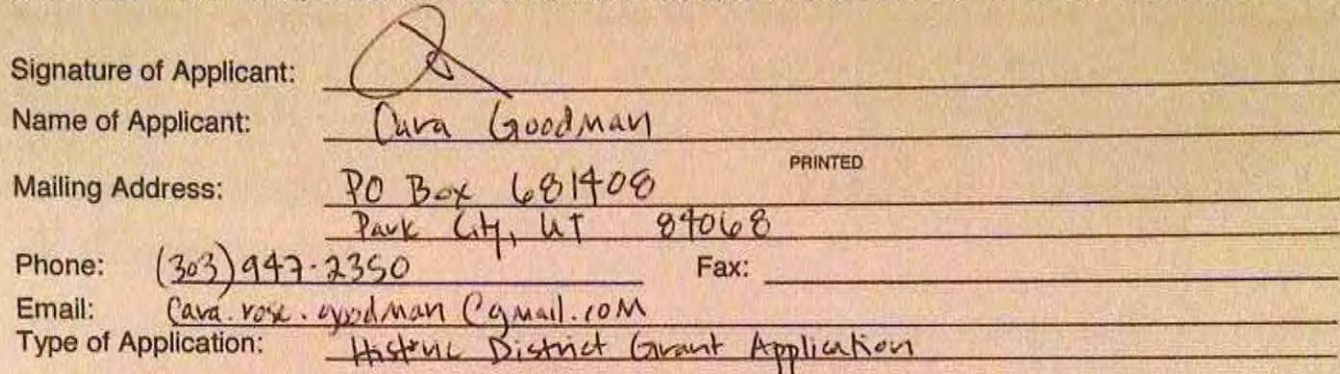 Signature of Applicant:
Name of Applicant: Cara Goodman
PRINTED
Mailing Address: PO Box 681408
Park City, UT 84068
Phone: (303) 947-2350 Fax:
Email: Cara.rose.goodman@gmail.com
Type of Application: Historic District Grant Application